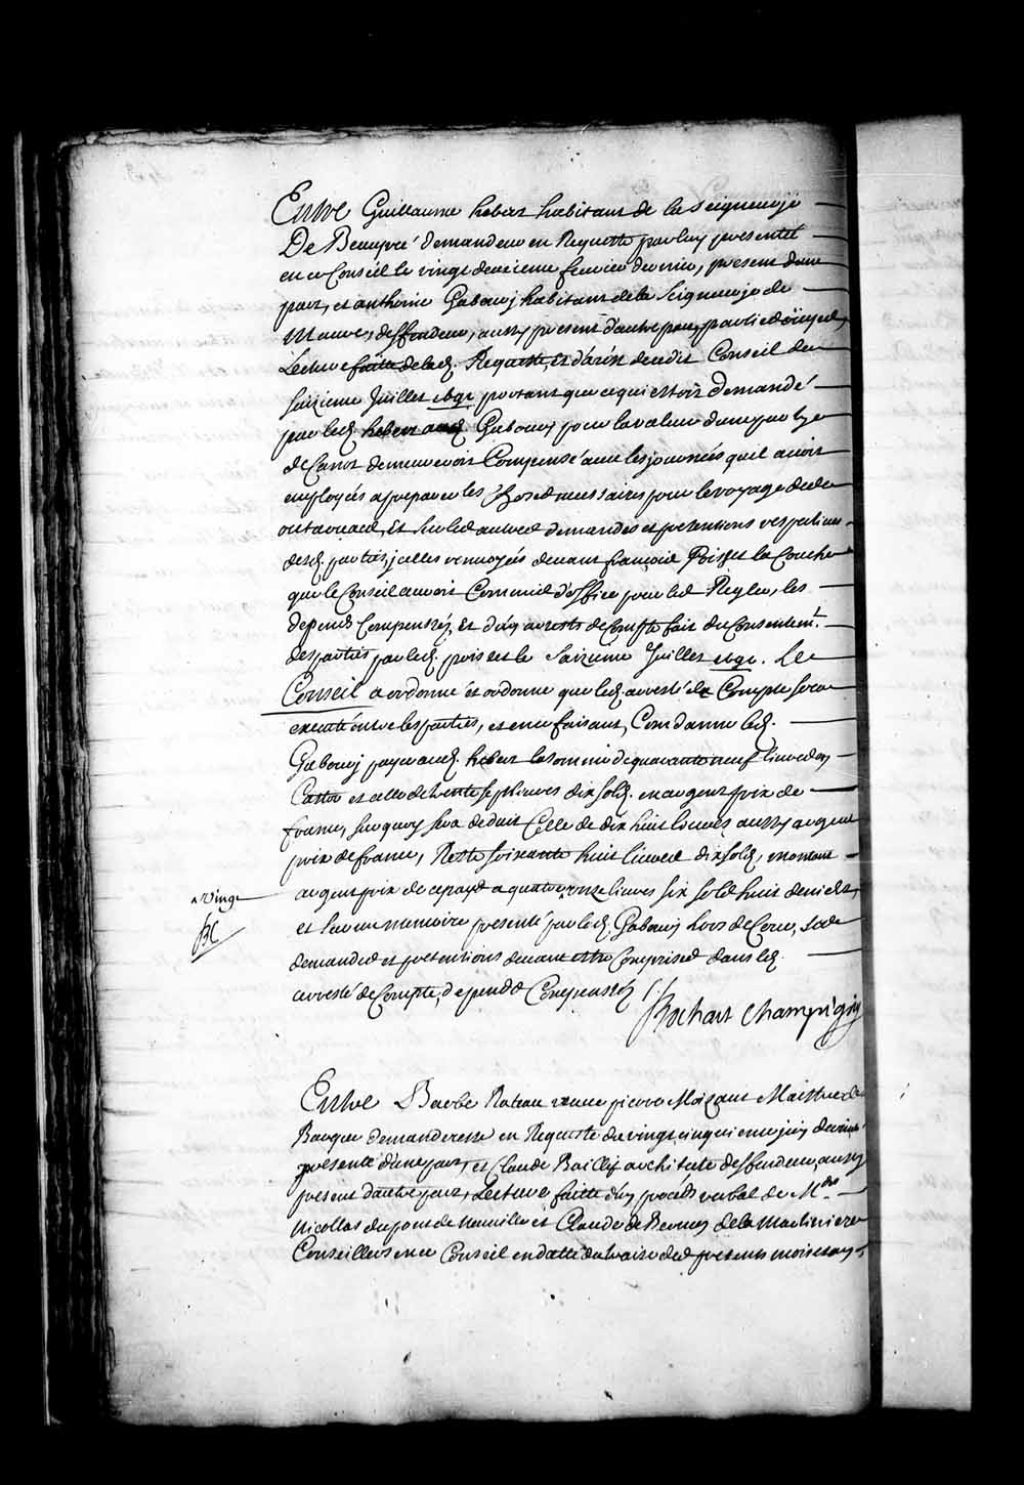 Entre Guillaume hebert habitant de la Seigneurie
De Beaupré demandeur en Requeste par luy presentée
en ce Conseil le vingt deuxieme fevrier dernier, present dune
part, et anthoine Gaboury habitant de la Seigneurie de
Maure, deffendeur, aussy present d'autre part, parties oüyes,
Lecture faitte de lad. Requeste, Et d'arest dudit Conseil du
seizieme Juillet portant que ce qui estoit demandé
par led. hebert aud. Gaboury pour la valeur dune
de Canot demeureroit Compensé avec les journées quil avoit
employées a preparer les choses necessaires pour le voyage des
outaouacs, Et sur les autres demandes et pretentions respectives
desd. parties, icelles renvoyées devant françois Poisset la Conche
que le Conseil auroit Commis d'office pour les Regler, les
depens Compensez, Et d'un arresté de Compte fait du Consentemt.
des parties par led. poisset le Seizieme Juillet . Le
Conseil a ordonné et ordonne que led. arresté de Compte sera
executé entre les parties, et en ce faisant, Condamne led.
Gaboury payer aud. hebert la somme de quarante neuf livres en
Castor et celle de trente sept livres dix sols. en argent prix de
france, sur quoy sera deduit Celle de dix huit livres aussy argent
prix de france, Reste soixante huit livres dix sols, montant
argent prix de ce pays a quatre onze livres six sols huit deniers,
^ vingt
et sur un memoire presenté par led. Gaboury hors de Cour, ses
demandes et pretentions devant estre Comprises dans led.
arresté de Compte, depens Compensez ./.
Bochart Champigny
Entre Barbe Rateau veuve pierre Moizant Maistre de
Barque demanderesse en Requeste du vingt cinquieme juin dernier
presente d'une part, et Claude Baillif architecte deffendeur, aussy
present d'autre part, Lecture faitte d'un procés verbal de Mes.
Nicollas dupont de Neuville et Claude de Bermen de la Martiniere
Conseillers en ce Conseil en datte du treize des presents mois et an,